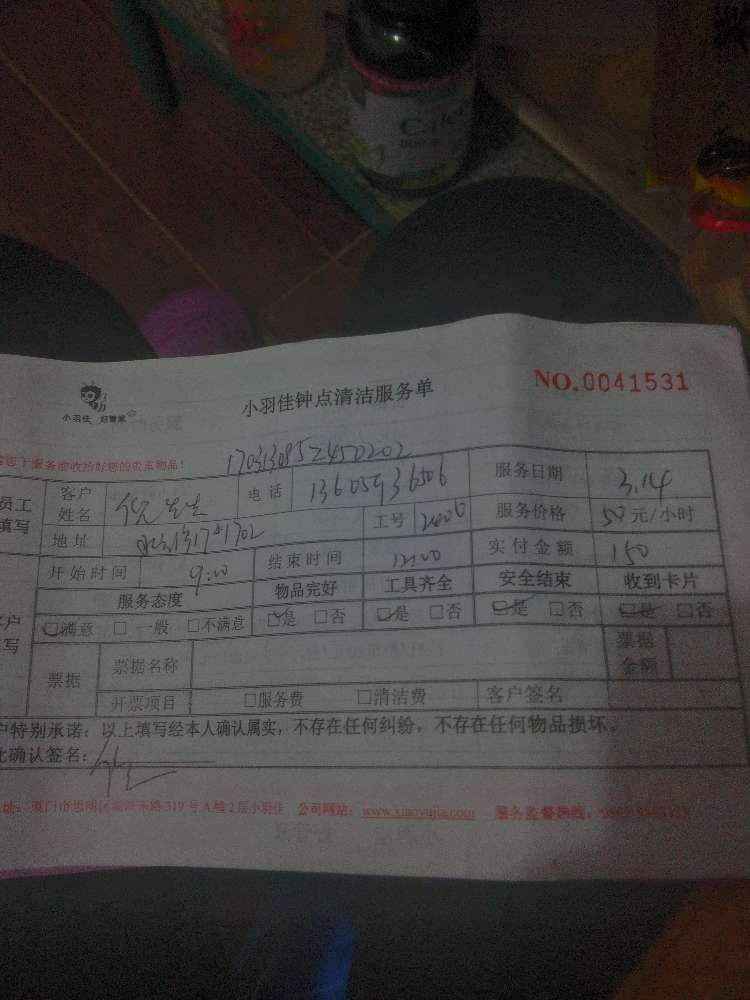 Calc
小羽佳 好管家
小羽佳钟点清洁服务单
NO.0041531
17031309852450202
员工 填写
客户 姓名 倪先生 电话 13605936506 服务日期 3.14
地址 17#1702 工号 2606 服务价格 50元/小时
开始时间 9:00 结束时间 12:00 实付金额 150
服务态度 物品完好 工具齐全 安全结束 收到卡片
☑满意 □一般 □不满意 ☑是 □否 ☑是 □否 ☑是 □否 ☑是 □否
票据 票据名称 票据 金额
开票项目 □服务费 □清洁费 客户签名
户特别承诺：以上填写经本人确认属实，不存在任何纠纷，不存在任何物品损坏。
此确认签名：
址：厦门市思明区 319号A幢2层小羽佳 公司网站：www.xiaoyujia.com 服务监督热线：